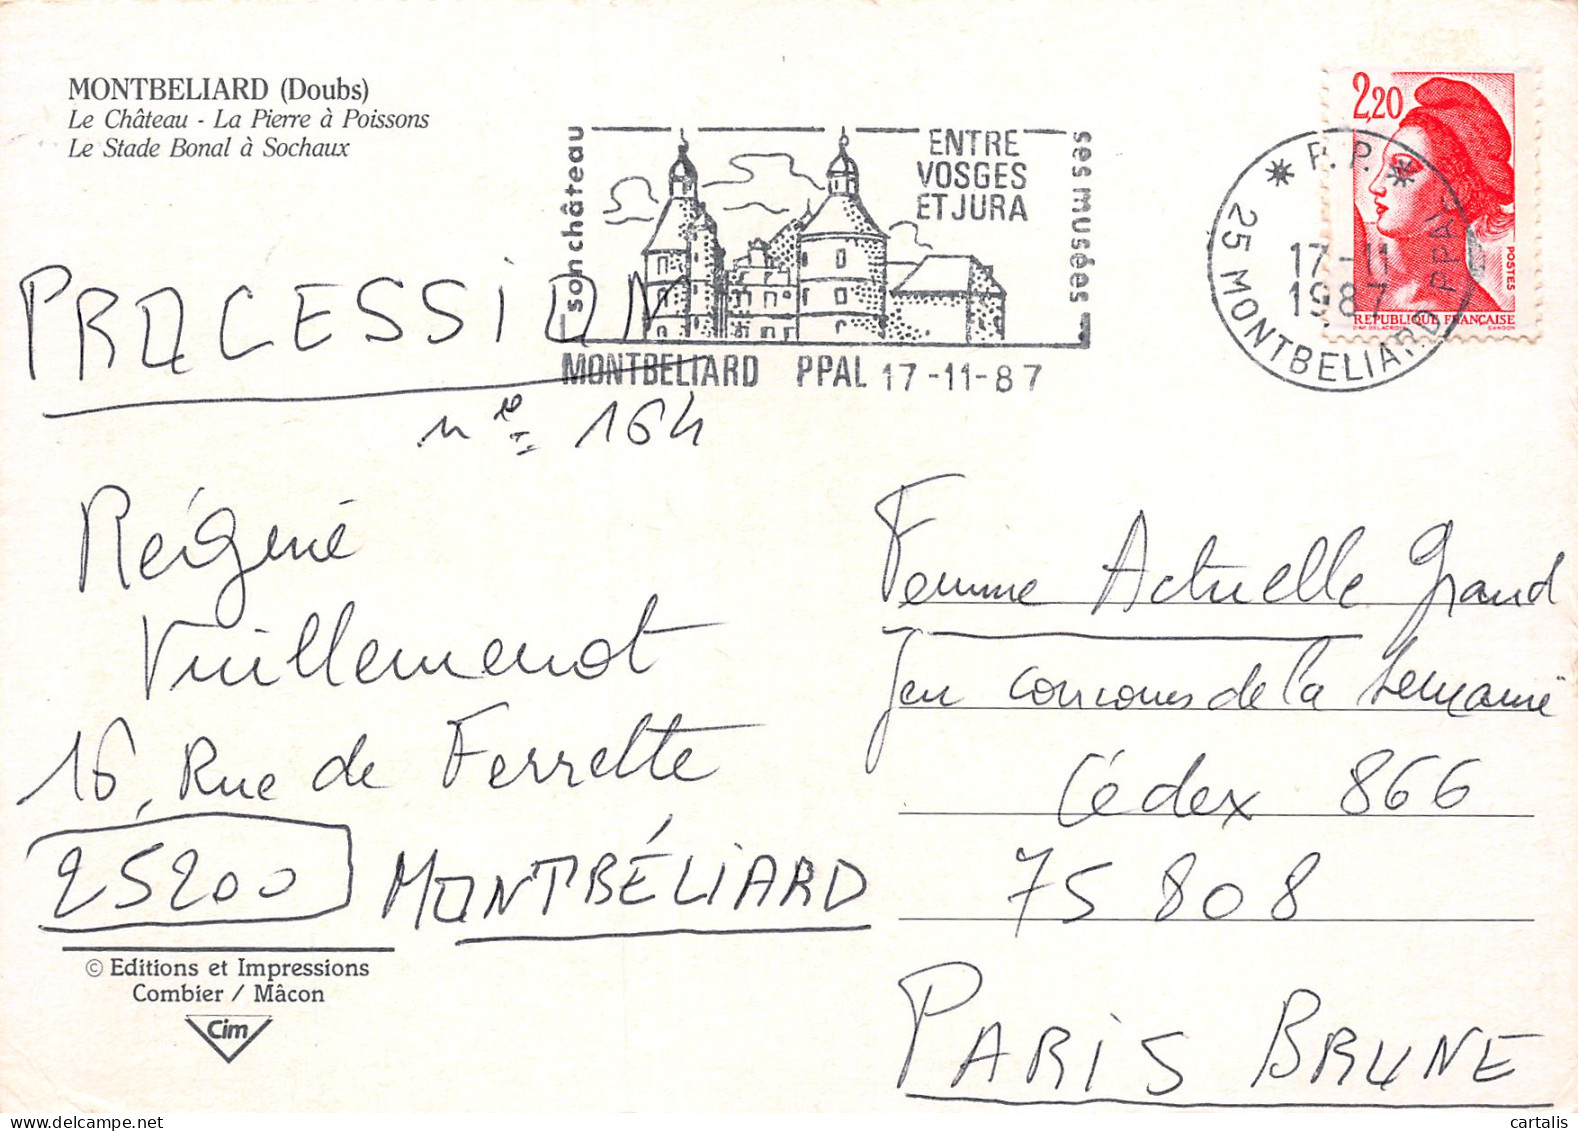 MONTBELIARD (Doubs)
Le Château - La Pierre à Poissons
Le Stade Bonal à Sochaux
son château
ENTRE
VOSGES
ET JURA
ses musées
MONTBELIARD PPAL 17-11-87
2,20
POSTES
REPUBLIQUE FRANÇAISE
* P.P. *
17-11
1987
25 MONTBELIARD PPAL
PROCESSION
164
Régine
Vuillemenot
16, Rue de Ferrette
25200 MONTBÉLIARD
© Editions et Impressions
Combier / Mâcon
Cim
Femme Actuelle Grand
Jeu concours de la semaine
Cédex 866
75 808
PARIS BRUNE
cartalis